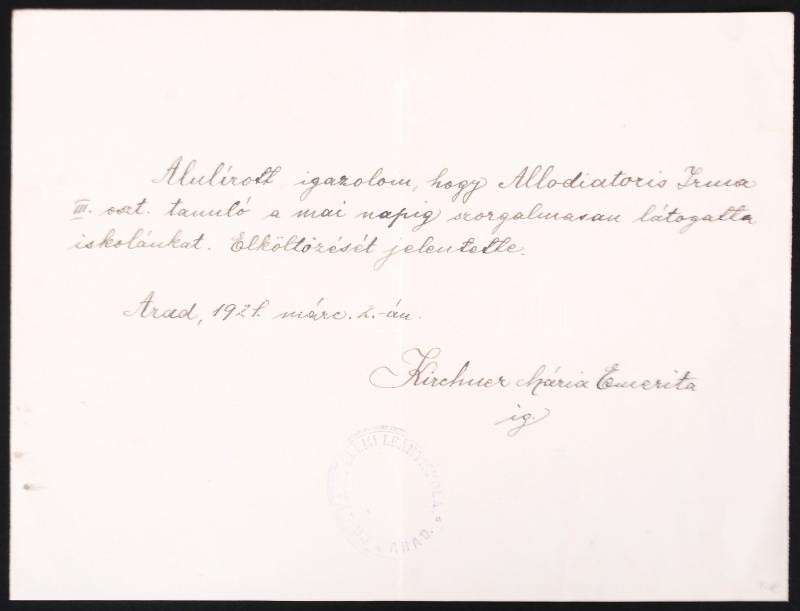 Alulírott igazolom, hogy Allodiatoris Irma
III. oszt. tanuló a mai napig szorgalmasan látogatta
iskolánkat. Elköltözését jelentette.
Arad, 1921. márc. 2.-án.
Kirchner Mária Emerita
ig.
ELEMI LEÁNYISKOLA. * ARAD. *